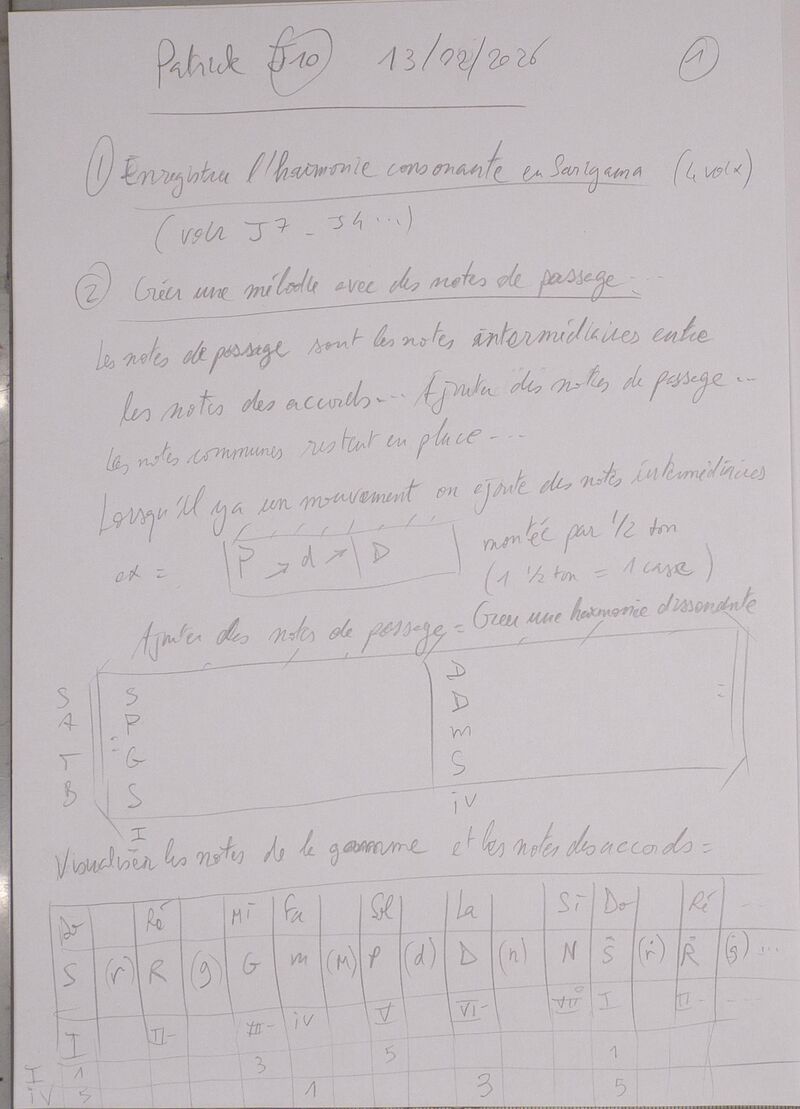 Patrick J10 13/02/2026 1
1 Enregistrer l'harmonie consonante en Sarigama (4 voix)
(voir J7 - J4 ...)
2 Créer une mélodie avec des notes de passage ...
Les notes de passage sont les notes intermédiaires entre
les notes des accords... Ajouter des notes de passage...
Les notes communes restent en place ...
Lorsqu'il y a un mouvement on ajoute des notes intermédiaires
ex = P → d → D montée par 1/2 ton
(1 1/2 ton = 1 case)
Ajouter des notes de passage = Créer une harmonie dissonante
S S D
A P D
T G m
B S S
I iv
Visualiser les notes de la gamme et les notes des accords =
Do Ré Mi Fa Sol La Si Do Ré ...
S (r) R (g) G m (M) P (d) D (n) N Ṡ (ṙ) Ṙ (ġ) ...
I II- III- iv V VI- VII° I II- ...
I 1 3 5 1
iv 5 1 3 5